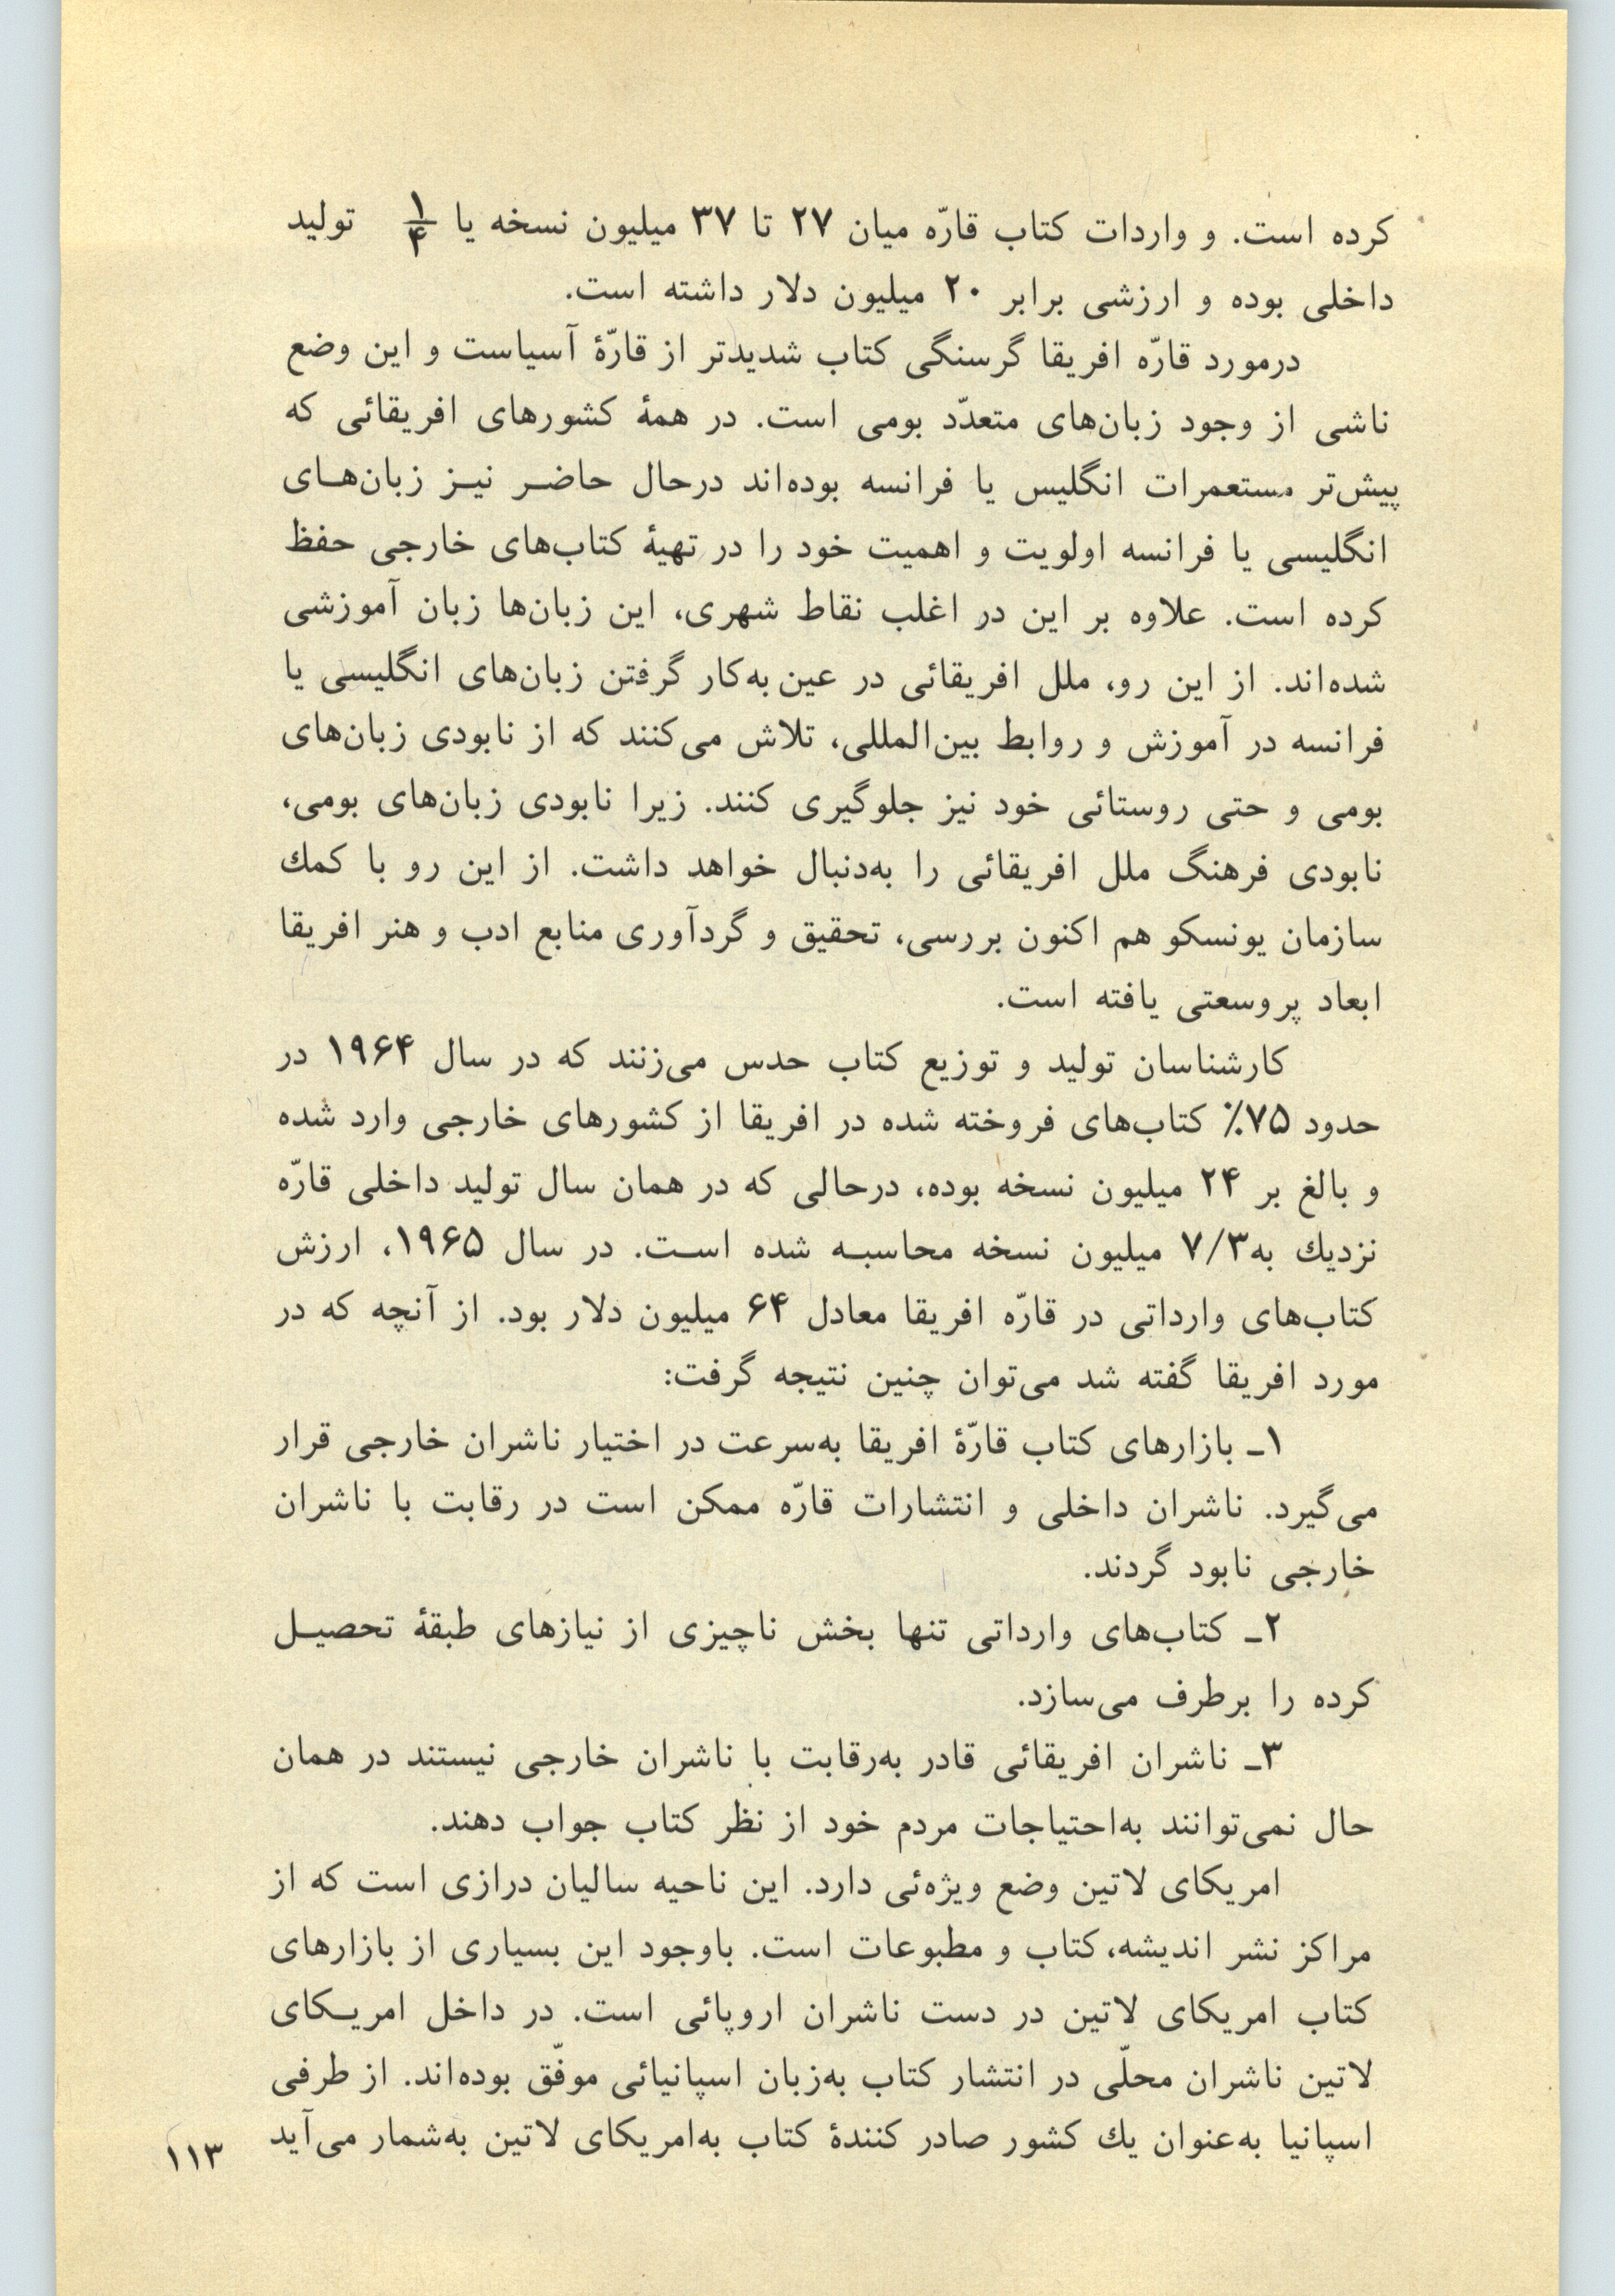 کرده است. و واردات کتاب قارّه میان ۲۷ تا ۳۷ میلیون نسخه یا ۱/۴ تولید
داخلی بوده و ارزشی برابر ۲۰ میلیون دلار داشته است.
درمورد قارّه افریقا گرسنگی کتاب شدیدتر از قارّهٔ آسیاست و این وضع
ناشی از وجود زبان‌های متعدّد بومی است. در همهٔ کشورهای افریقائی که
پیش‌تر مستعمرات انگلیس یا فرانسه بوده‌اند درحال حاضـر نیـز زبان‌هـای
انگلیسی یا فرانسه اولویت و اهمیت خود را در تهیهٔ کتاب‌های خارجی حفظ
کرده است. علاوه بر این در اغلب نقاط شهری، این زبان‌ها زبان آموزشی
شده‌اند. از این رو، ملل افریقائی در عین به‌کار گرفتن زبان‌های انگلیسی یا
فرانسه در آموزش و روابط بین‌المللی، تلاش می‌کنند که از نابودی زبان‌های
بومی و حتی روستائی خود نیز جلوگیری کنند. زیرا نابودی زبان‌های بومی،
نابودی فرهنگ ملل افریقائی را به‌دنبال خواهد داشت. از این رو با کمك
سازمان یونسکو هم اکنون بررسی، تحقیق و گردآوری منابع ادب و هنر افریقا
ابعاد پروسعتی یافته است.
کارشناسان تولید و توزیع کتاب حدس می‌زنند که در سال ۱۹۶۴ در
حدود ۷۵٪ کتاب‌های فروخته شده در افریقا از کشورهای خارجی وارد شده
و بالغ بر ۲۴ میلیون نسخه بوده، درحالی که در همان سال تولید داخلی قارّه
نزدیك به۷/۳ میلیون نسخه محاسبـه شده اسـت. در سال ۱۹۶۵، ارزش
کتاب‌های وارداتی در قارّه افریقا معادل ۶۴ میلیون دلار بود. از آنچه که در
مورد افریقا گفته شد می‌توان چنین نتیجه گرفت:
۱ـ بازارهای کتاب قارّهٔ افریقا به‌سرعت در اختیار ناشران خارجی قرار
می‌گیرد. ناشران داخلی و انتشارات قارّه ممکن است در رقابت با ناشران
خارجی نابود گردند.
۲ـ کتاب‌های وارداتی تنها بخش ناچیزی از نیازهای طبقهٔ تحصیـل
کرده را برطرف می‌سازد.
۳ـ ناشران افریقائی قادر به‌رقابت با ناشران خارجی نیستند در همان
حال نمی‌توانند به‌احتیاجات مردم خود از نظر کتاب جواب دهند.
امریکای لاتین وضع ویژه‌ئی دارد. این ناحیه سالیان درازی است که از
مراکز نشر اندیشه، کتاب و مطبوعات است. باوجود این بسیاری از بازارهای
کتاب امریکای لاتین در دست ناشران اروپائی است. در داخل امریـکای
لاتین ناشران محلّی در انتشار کتاب به‌زبان اسپانیائی موفّق بوده‌اند. از طرفی
اسپانیا به‌عنوان یك کشور صادر کنندهٔ کتاب به‌امریکای لاتین به‌شمار می‌آید
۱۱۳